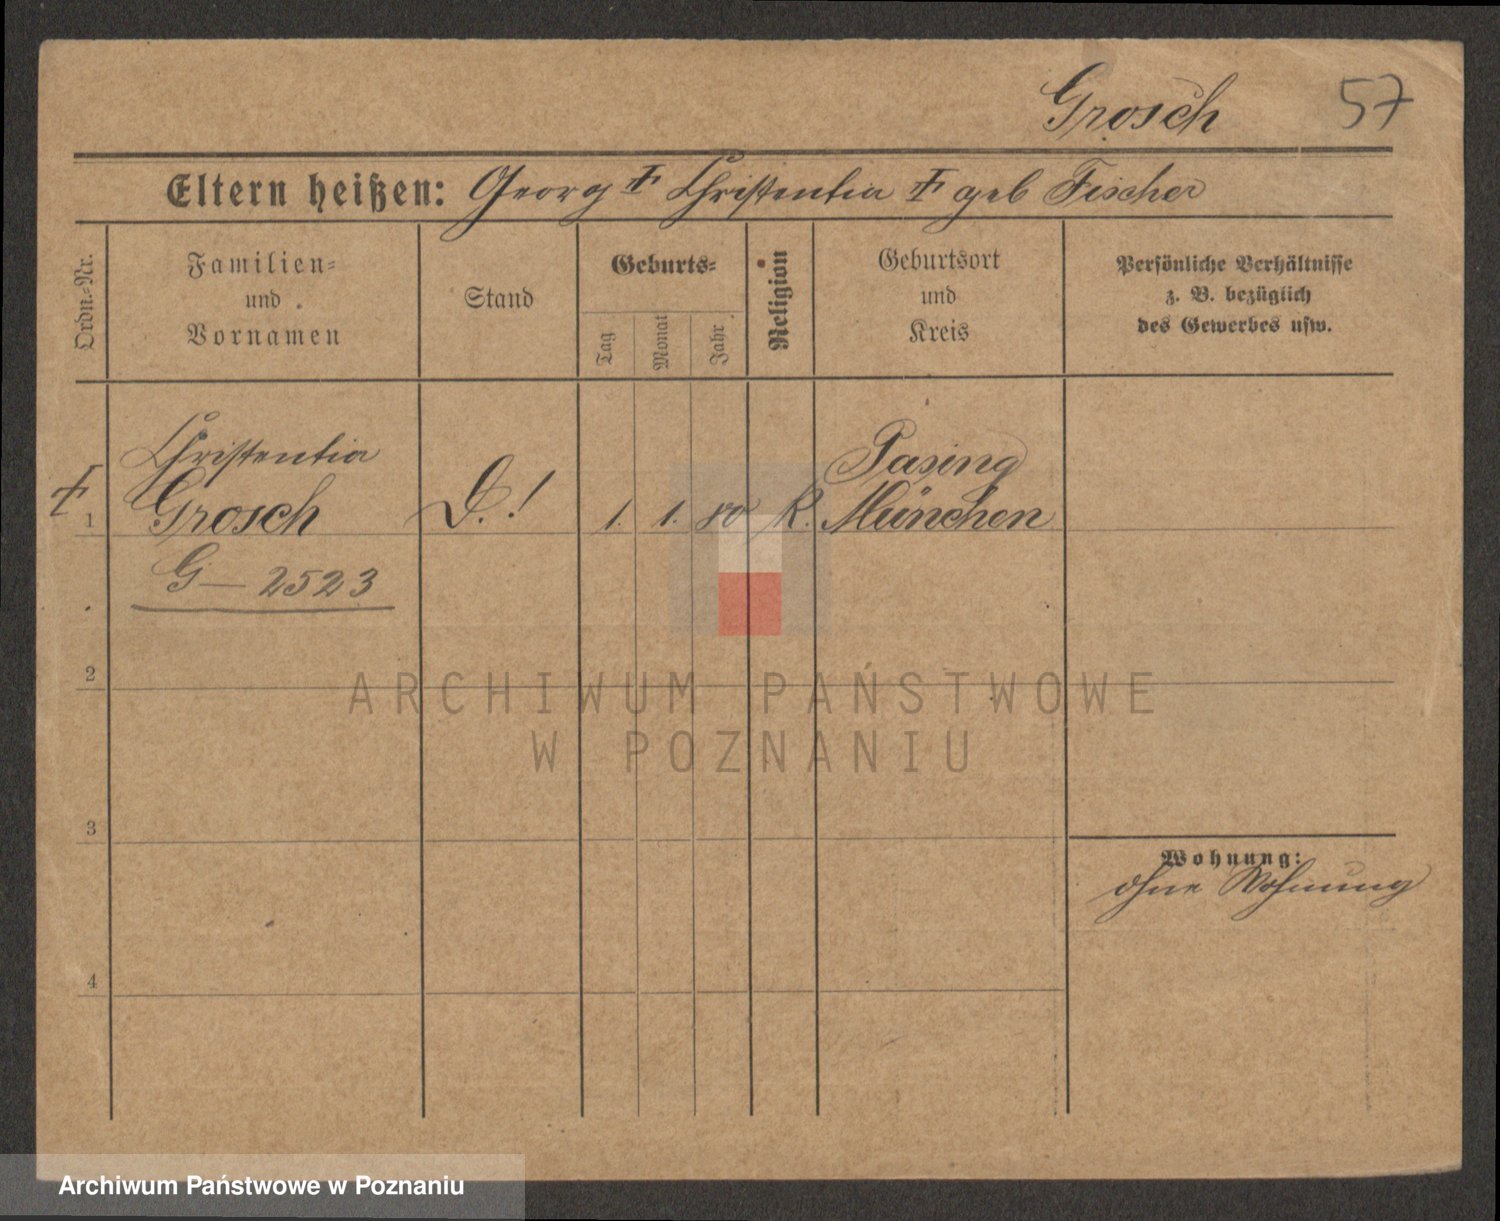 Grosch 57
Eltern heißen: Georg ‡ Christentia ‡ geb Fischer
Ordn.-Nr.
Familien-
und
Vornamen
Stand
Geburts-
Tag
Monat
Jahr
Religion
Geburtsort
und
Kreis
Persönliche Verhältnisse
z. B. bezüglich
des Gewerbes usw.
Christentia Pasing
‡ 1 Grosch D.! 1. 1. 80 K. München
G—2523
2
ARCHIWUM PAŃSTWOWE
W POZNANIU
3
Wohnung:
ohne Wohnung
4
Archiwum Państwowe w Poznaniu